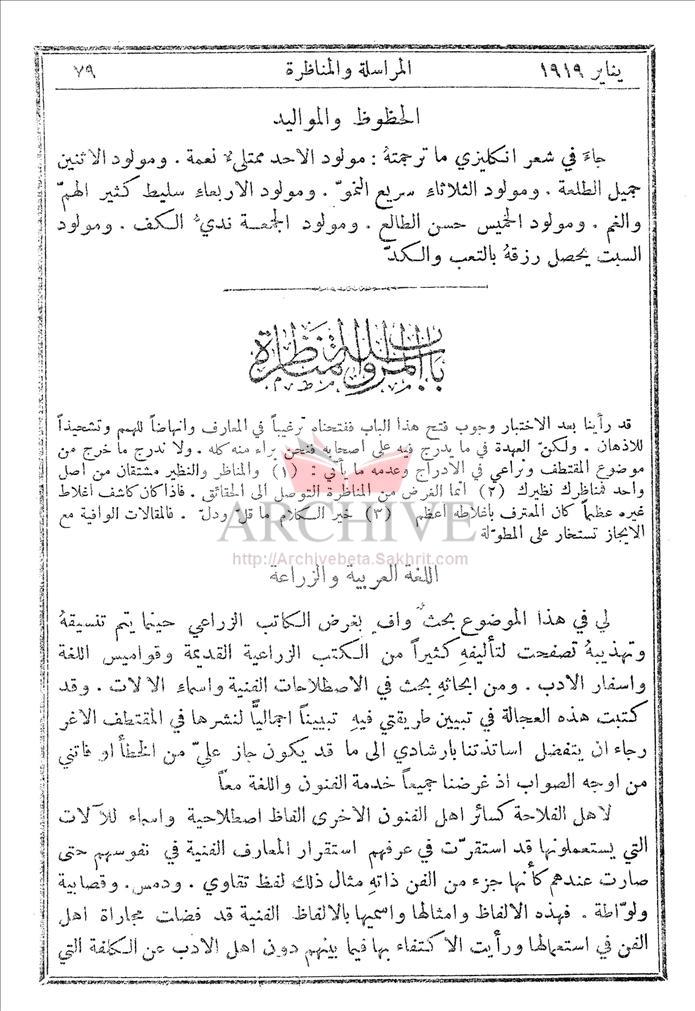 يناير ١٩١٩ المراسلة والمناظرة ٧٩
الحظوظ والمواليد
جاءَ في شعر انكليزي ما ترجمتهُ : مولود الاحد ممتلئ نعمة . ومولود الاثنين
جميل الطلعة . ومولود الثلاثاءِ سريع النموّ . ومولود الاربعاءِ سليط كثير الهمّ
والغم . ومولود الخميس حسن الطالع . ومولود الجمعة نديُّ الكف . ومولود
السبت يحصل رزقهُ بالتعب والكدّ
باب المراسلة والمناظرة
قد رأينا بعد الاختبار وجوب فتح هذا الباب ففتحناه ترغيباً في المعارف وانهاضاً للهمم وتشحيذاً
للاذهان . ولكنّ العهدة في ما يدرج فيه على اصحابه فنحن براء منه كله . ولا ندرج ما خرج عن
موضوع المقتطف ونراعي في الادراج وعدمه ما يأتي : (١) والمناظر والنظير مشتقان من اصل
واحد فمناظرك نظيرك (٢) انما الغرض من المناظرة التوصل الى الحقائق . فاذا كان كاشف اغلاط
غيره عظيماً كان المعترف بأغلاطه اعظم (٣) خير الكلام ما قلّ ودلّ . فالمقالات الوافية مع
الايجاز تستخار على المطوّلة
ARCHIVE
http://Archivebeta.Sakhrit.com
اللغة العربية والزراعة
لي في هذا الموضوع بحثٌ وافٍ بغرض الكاتب الزراعي حينما يتم تنسيقهُ
وتهذيبهُ تصفحت لتأليفهِ كثيراً من الكتب الزراعية القديمة وقواميس اللغة
واسفار الادب . ومن ابحاثهِ بحث في الاصطلاحات الفنية واسماءِ الالات . وقد
كتبت هذه العجالة في تبيين طريقتي فيهِ تبييناً اجماليًّا لنشرها في المقتطف الاغر
رجاء ان يتفضل اساتذتنا بارشادي الى ما قد يكون جاز عليّ من الخطأ او فاتني
من اوجه الصواب اذ غرضنا جميعاً خدمة الفنون واللغة معاً
لاهل الفلاحة كسائر اهل الفنون الاخرى الفاظ اصطلاحية واسماء للآلات
التي يستعملونها قد استقرّت في عرفهم استقرار المعارف الفنية في نفوسهم حتى
صارت عندهم كأنها جزء من الفن ذاتهِ مثال ذلك لفظ تقاوي . ودمس . وقصابية
ولوّاطة . فهذه الالفاظ وامثالها واسميها بالالفاظ الفنية قد فضلت مجاراة اهل
الفن في استعمالها ورأيت الاكتفاء بها فيما بينهم دون اهل الادب عن الكلفة التي